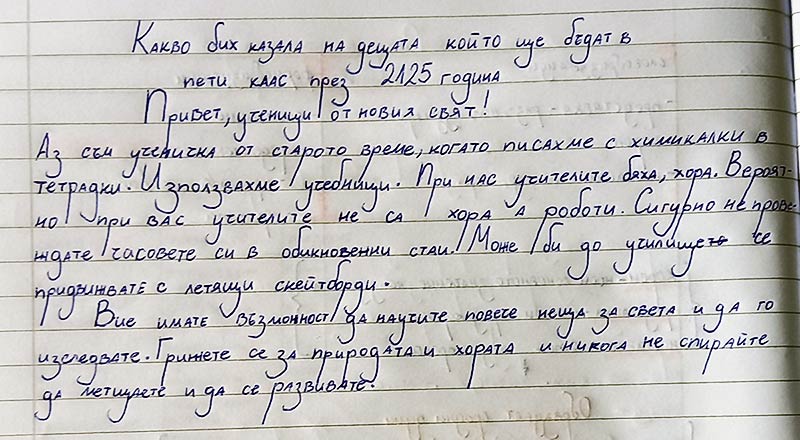 Какво бих казала на децата който ще бъдат в
пети клас през 2125 година
Привет, ученици от новия свят!
Аз съм ученичка от старото време, когато писахме с химикалки в
тетрадки. Използвахме учебници. При нас учителите бяха, хора. Вероят-
но при вас учителите не са хора а роботи. Сигурно не прове-
ждате часовете си в обикновенни стаи. Може би до училище се
придвижвате с летящи скейтборди.
Вие имате възможност да научите повече неща за света и да го
изследвате. Грижете се за природата и хората и никога не спирайте
да летищаете и да се развивате.